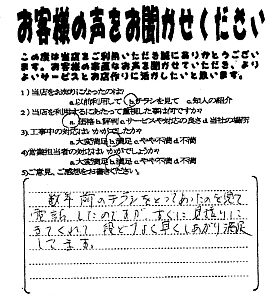 お客様の声をお聞かせください
この度は当店をご利用いただき誠にありがとうござい
ます。お客様の率直なお声を聞かせていただき、より
よいサービスとお店作りに活かしたいと思います。
1)当店をお知りになったのは?
a.以前利用して b.チラシを見て c.知人の紹介
2)当店を利用するにあたって重視した事は何ですか?
a.価格 b.評判 c.サービスや対応の良さ d.当社の場所
3)工事中の対応はいかがでしたか?
a.大変満足 b.満足 c.やや不満 d.不満
4)営業担当者の対応はいかがでしょうか?
a.大変満足 b.満足 c.やや不満 d.不満
5)ご意見、ご感想をお書きください。
数年前のチラシをとってあったのを見て
電話したのですが、すぐに見積りに
きてくれて 段どりよく早くしあがり満足
してます。